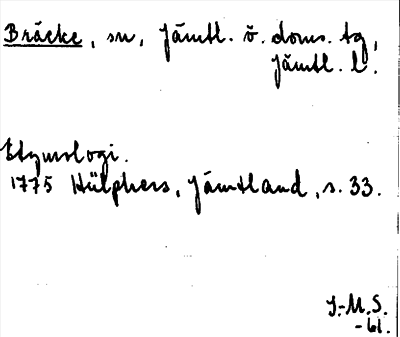 Bräcke, sn, Jämtl. ö. doms. tg,
Jämtl. l.
Etymologi.
1775 Hülphers, Jämtland, s. 33.
J.-M.S.
-61.